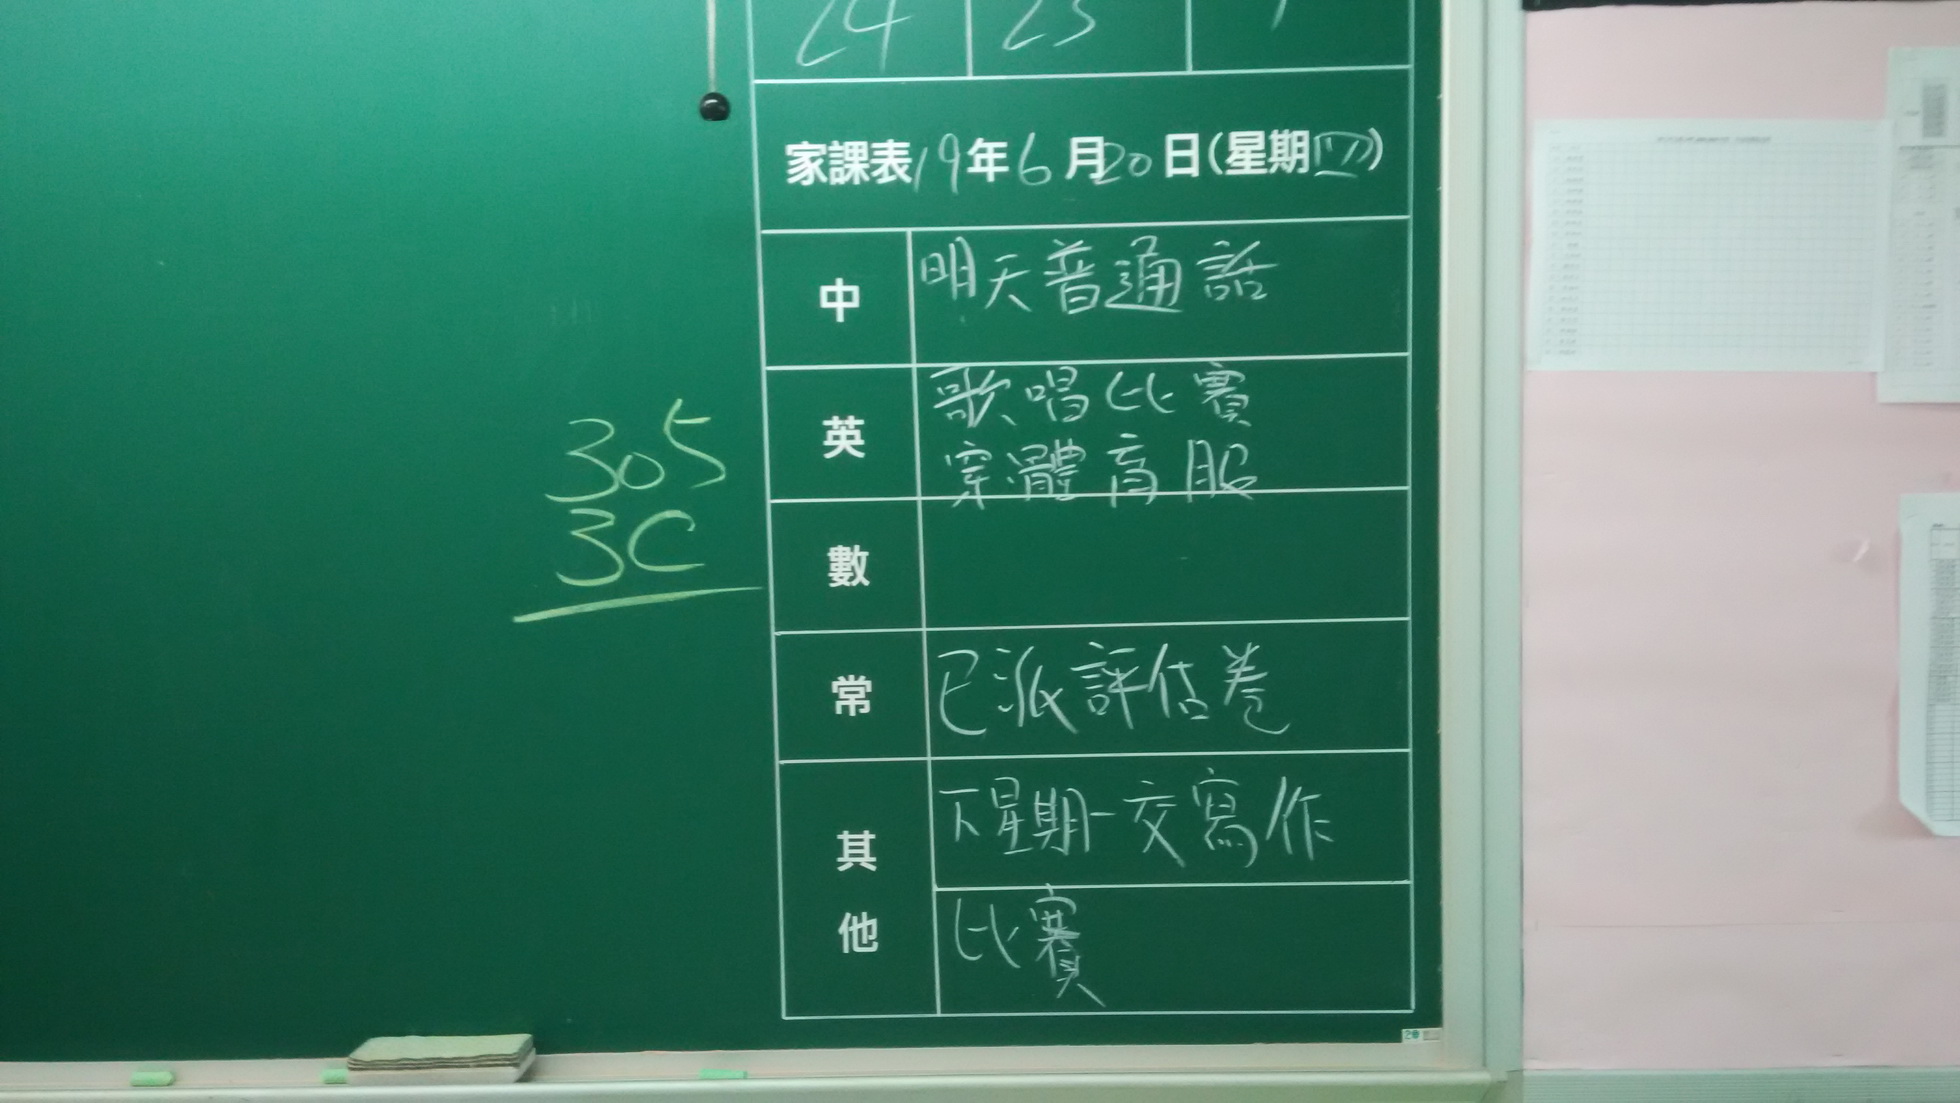 24 23
家課表19年6月20日(星期四)
中 明天普通話
英 歌唱比賽
穿體育服
數
常 已派評估卷
其他 下星期一交寫作
比賽
305
3C